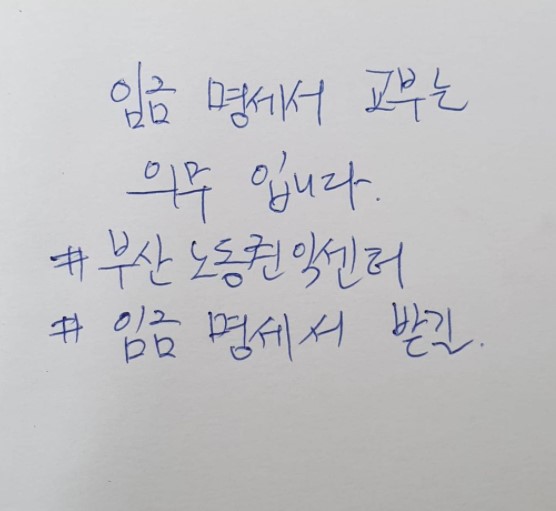 임금 명세서 교부는
의무 입니다.
# 부산노동권익센터
# 임금 명세서 받길.